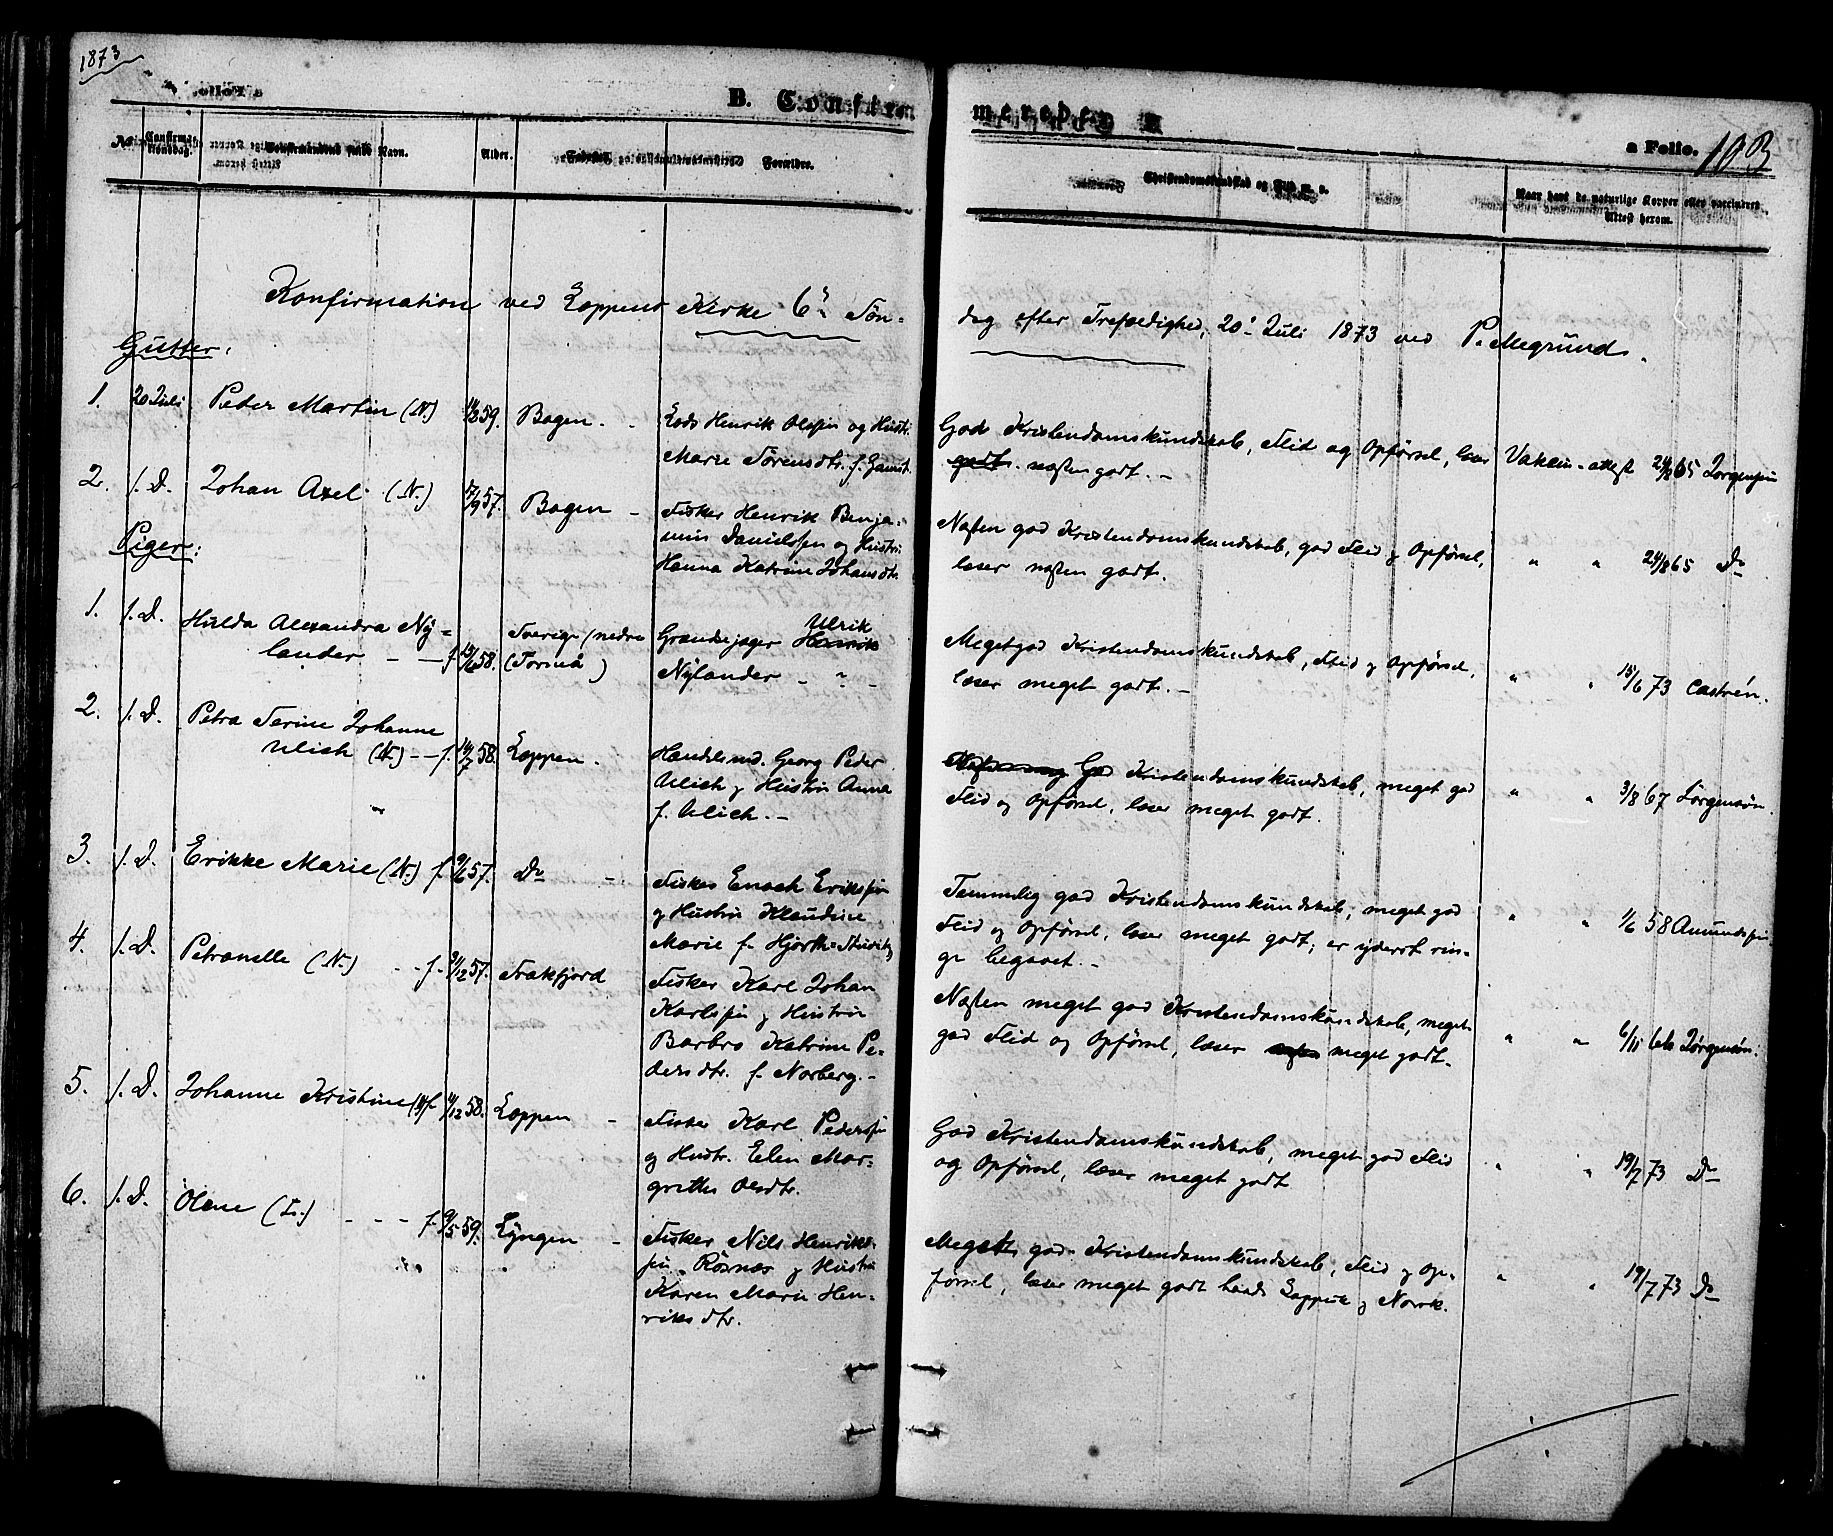 1873
B. Confirmerede
a Folio. 103
No.
Confirmationsdag.
Confirmandens fulde Navn.
Alder.
Forældre.
Christendomskundskab og Flid m. v.
Naar havt de naturlige Kopper eller vaccineret
Attest herom.
Konfirmation ved Loppens Kirke 6te Søn-
dag efter Trefoldighed, 20de Juli 1873 ved P. Megrund.
Gutter:
1. 20 Juli Peder Martin (N.) 59. Bogen. -
Henrik Olsen og Hustr.
Marie Sörensdtr. f.
God Kristendomskundskab, Flid og Opførsel, læser
godt. næsten godt. -
Vakcin. attest 24/8 65 Jörgensen
2. s. D. Johan Axel (N.) 17/9 57. Bogen -
Fisker Henrik Benja-
min Danielsen og Hustru
Hanna Katrine Johansdtr.
Næsten god Kristendomskundskab, god Flid og Opførsel,
læser næsten godt.
" " 24/8 65 Do
Piger:
1. s. D. Hulda Alexandra Ny-
lander - - f. 58.
Sverige (nedre
(Torneå)
Grændsejæger Ulrik Henrik
Nylander - ? -
Meget god Kristendomskundskab, Flid og Opførsel,
læser meget godt. -
" " 15/6 73 Castrén.
2. s. D. Petra Serine Johanne
Ulich (N.) - - f. 14/7 58. Loppen. -
Handelsmd. Georg Peder
Ulich og Hustru Anna
f. Ulich. -
God Kristendomskundskab, meget god
Flid og Opførsel, læser meget godt.
" " 3/8 67 Jörgensön
3. s. D. Erikke Marie (N.) f. 9/6 57. Do -
Fisker Enoch Eriksen
og Hustru Klaudine
Marie f. Hjorth
Temmelig god Kristendomskundskab, meget god
Flid og Opførsel, læser meget godt; er yderst rin-
ge begavet. -
" " 1/6 58 Amundsen
4. s. D. Petronelle (N.) - - f. 57. Frakfjord
Fisker Karl Johan
Karlsen og Hustru
Barbro Katrine Pe-
dersdtr. f. Norberg. -
Næsten meget god Kristendomskundskab, meget
god Flid og Opførsel, læser meget godt.
" " 6/11 66 Jörgensön.
5. s. D. Johanne Kristine (N) f. 58. Loppen -
Fisker Karl Pedersen
og Hustr. Elen Mar-
grethe Olsdtr.
God Kristendomskundskab, meget god Flid
og Opførsel, læser meget godt
" " 19/7 73 Do
6. s. D. Olene (L.) - - - f. 9/5 59. Lyngen -
Fisker Nils Henrik-
sen Rösnæs og Hustru
Karen Marie Hen-
riksdtr.
Meget god Kristendomskundskab, Flid og Op-
førsel, læser meget godt baade Lappisk og Norsk.
" " 19/7 73 Do